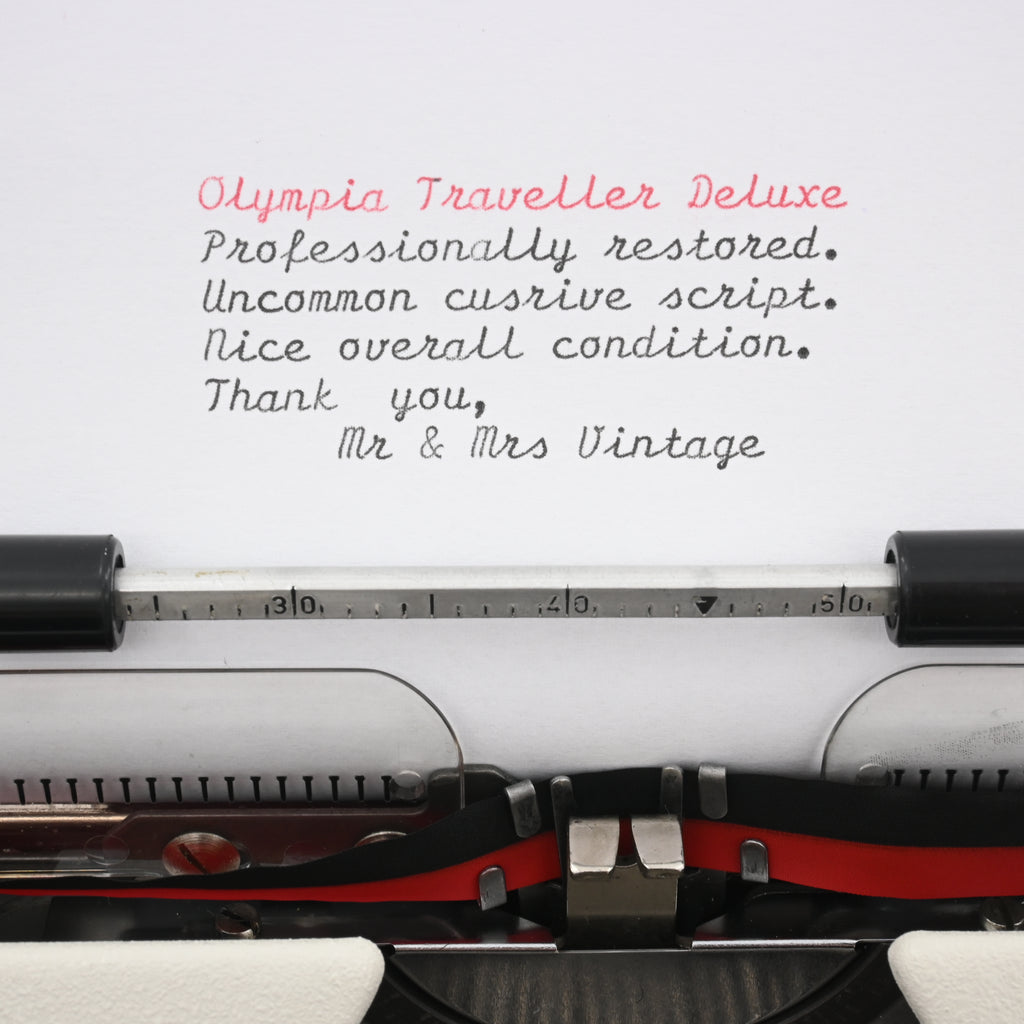 Olympia Traveller Deluxe
Professionally restored.
Uncommon cusrive script.
Nice overall condition.
Thank  you,
Mr & Mrs Vintage
30 40 50